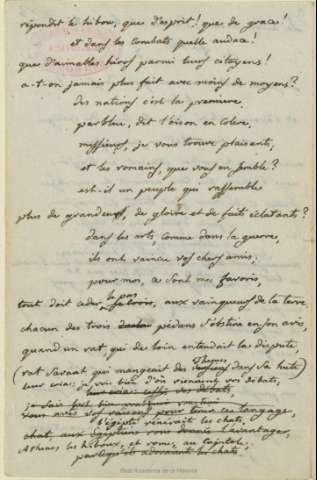 répondit le hibou, que d'esprit! que de grace!
et dans les combats quelle audace!
que d'aimables héros parmi leurs citoyens!
a-t-on jamais plus fait avec moins de moyens?
des nations c'est la premiere.
parbleu, dit l'oison en colere,
messieurs, je vous trouve plaisants,
et les romains, que vous en semble?
est-il un peuple qui rassemble
plus de grandeurs, de gloire et de faits éclatants?
dans les arts comme dans la guerre,
ils ont vaincu vos chers amis;
pour moi, ce sont mes favoris,
tout doit ceder le pas aux vainqueurs de la terre
chacun des trois pédans s'obstine en son avis,
quand un rat qui de loin entendait la dispute,
(rat savant qui mangeait des themes dans sa hute)
leur cria: je vois bien d'où viennent vos débats,
l'égipte vénérait les chats,
Athenes les hiboux, et rome, au capitole,
Real Academia de la Historia